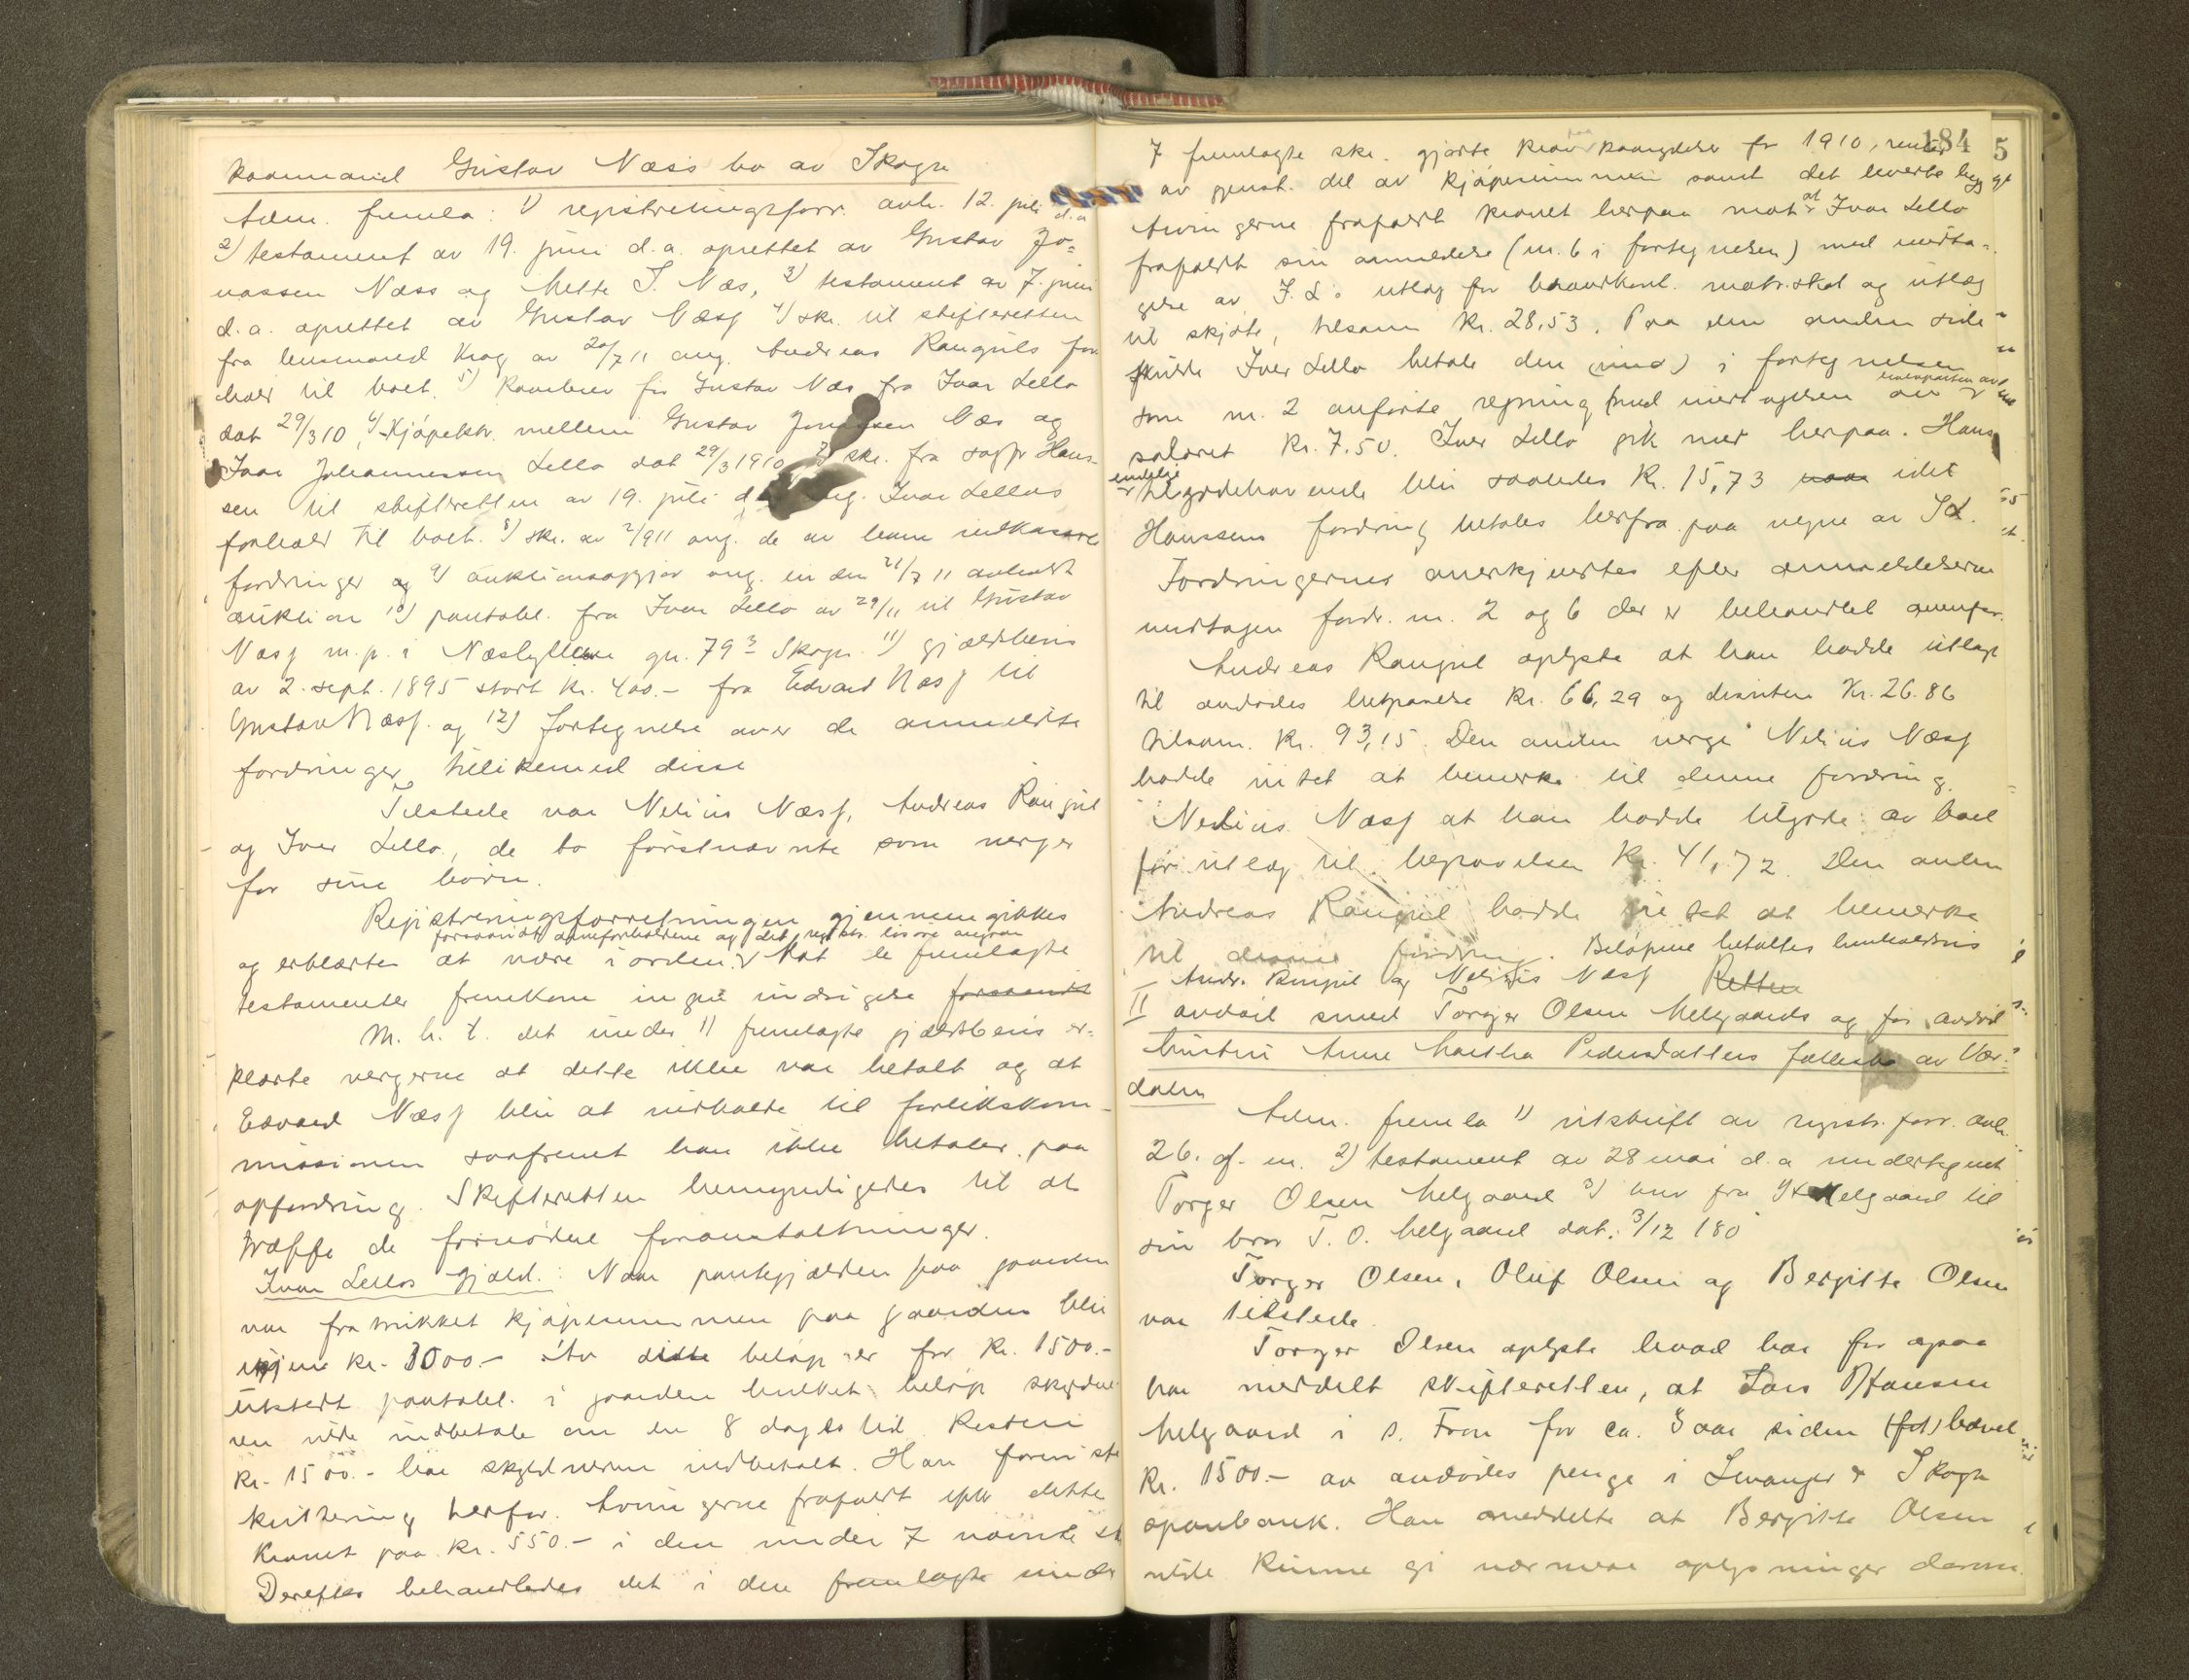 kaarmand Gustav Næss bo av Skogn
Adm. fremla: 1) registreringsforr. avh. 12. juli d.a
2) testament av 19. juni d.a. oprettet av Gustav Jo=
nassen Næss og Mette J. Næs, 3) testament av 7. juni
d.a. oprettet av Gustav Næss 4) skr. til skifteretten
fra lensmand Krog av 20/7 11 ang. Andreas Ranguls for
hold til boet. 5) Kravbrev fra Gustav Næs fra Ivar Lello
dat 29/3 10, 6) Kjøpektr. mellem Gustav Jonassen Næs og
Ivar Johannessen Lello dat 29/3 1910 7) skr. fra sagf. Hans-
sen til skifteretten av 19. juli d ang. Ivar Lellos
forhold til boet. 8) skr. av 2/9 11 ang. de av ham indkasserte
fordringer og 9) auktionsopgjør ang. en den 21/7 11 avholdt
auktion 10) pantobl. fra Ivar Lello av 29/11 til Gustav
Næss m.p. i Næshyllen gn. 79 3 Skogn. 11) gjældsbevis
av 2. sept. 1895 stort kr. 400.- fra Edvard Næss til
Gustav Næss. og 12) fortegnelse over de anmeldte
fordringer tillikemed disse
Tilstede var Nelius Næss, Andreas Rangul
og Iver Lello, de to førstnævnte som verger
for sine børn.
Registreringsforretningen gjennemgikkes
forsaavidt arveforholdene og det regist. løsøre angaar
og erklærtes at være i orden. Mot de fremlagte
testamenter fremkom ingen indsigelse forsaavidt
M. h. t. det under 11 fremlagte gjældsbevis er-
klærte vergerne at dette ikke var betalt og at
Edvard Næss blir at indkalde til forlikskom-
missionen saafremt han ikke betaler paa
opfordring. Skifteretten bemyndigedes til at
træffe de fornødne foranstaltninger.
Ivar Lellos gjæld: Naar pantegjælden paa gaarden
var fratrukket kjøpesummen paa gaarden blir
igjen kr. 3000.- Av dette beløp er for kr. 1500.-
utstedt pantobl. i gaarden hvilket beløp skyldne
ren vilde indbetale om en 8 dages tid Resten
kr. 1500.- har skyldneren indbetalt. Han foreviste
kvittering herfor. Arvingerne frafaldt efter dette
kravet paa kr. 550.- i den under 7 nævnte sk
Derefter behandledes det i den fremlagte under
184
7 fremlagte skr. gjorte krav paa kaarydelser for 1910, renter
av gjenst. del av kjøpesummen samt det leverte bygg
Arvingerne frafaldt kravet herpaa mot at Ivar Lello
frafaldt sin anmeldelse (nr. 6 i fortegnelsen) med undta-
gelse av J. L.s utlæg for brandkont. matr.skat og utlæg
til skjøte, tilsam kr. 28,53. Paa den anden side
skulde Iver Lello betale den (m) i fortegnelsen
som nr. 2 anførte regning med undtagelsen av halvparten av
salæret kr. 7.50. Iver Lello gik med herpaa. Hans
endelige
tilgodehavende blir saaledes kr. 15,73 idet
Hanssens fordring betales herfra paa vegne av J.L.
Fordringernes anerkjendtes efter anmeldelserne
undtagen fordr. nr. 2 og 6 der er behandlet ovenfor.
Andreas Rangul oplyste at han hadde utlagt
til avdødes begravelse kr. 66,29 og desuten kr. 26.86
tilsam. kr. 93,15. Den anden verge Nelius Næss
hadde intet at bemerke til denne fordring.
Nelius Næss at han hadde tilgode av boet
for utlæg til begravelsen kr. 41,72. Den anden
Andreas Rangul hadde intet at bemerke
til denne fordring. Beløpene betaltes henholdsvis
Andr. Rangul og Nelius Næss Retten
II avdød smed Torger Olsen Melgaards og før avdød
hustru Anne Martha Pedersdatters fællesbo av Vær-
dalen
Adm. fremla 1) utskrift av registr. forr. avh.
26. f. m. 2) testament av 28 mai d.a undertegnet
Torger Olsen Melgaard 3) brev fra Melgaard til
sin bror T. O. Melgaard dat. 3/12 180
Torger Olsen, Oluf Olsen og Bergitte Olsen
var tilstede.
Torger Olsen oplyste hvad han før ogsaa
har meddelt skifteretten, at Lars Hansen
Melgaard i S. Fron for ca. 3 aar siden (fik) hævet
kr. 1500.- av avdødes penge i Levanger & Skogn
sparebank. Han meddelte at Bergitte Olsen
vilde kunne gi nærmere oplysninger derom.